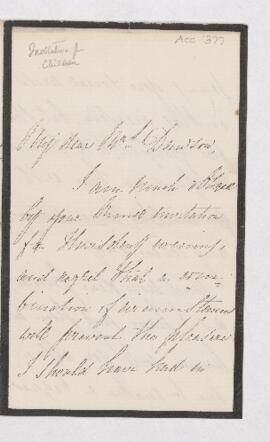 Acc 377
Invitation f
Children
My dear Mrs
I am much
by your kind invitation
for Thursday evening,
and regret that a com-
bination of circumstances
will prevent the pleasure
I should have had in